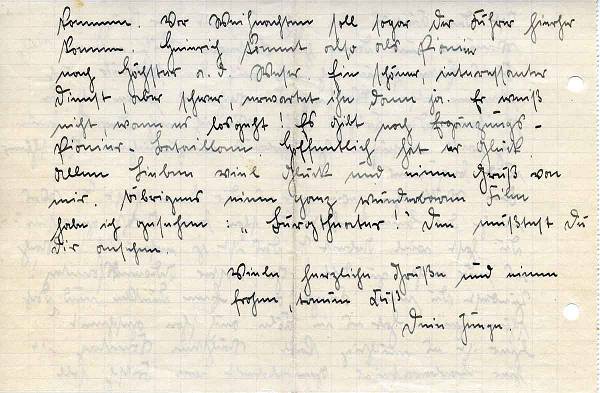 kommen. Vor Weihnachten soll sogar der Führer hierher
kommen. Heinrich kommt also als Pionier
nach Höchster a. d. Weser. Ein schöner, interessanter
Dienst, aber schwer, erwartet ihn dann ja. Er weiß
nicht, wann es losgeht! Es gibt noch Ergänzungs-
Pionier-Bataillone. Hoffentlich hat er Glück.
Allen Lieben viel Glück und einen Gruß von
mir. Übrigens einen ganz wunderbaren Film
habe ich gesehen: „Burgtheater!" Den müßtest Du
Dir ansehen.
Viele herzliche Grüße und einen
frohen, Kuß
Dein Junge.